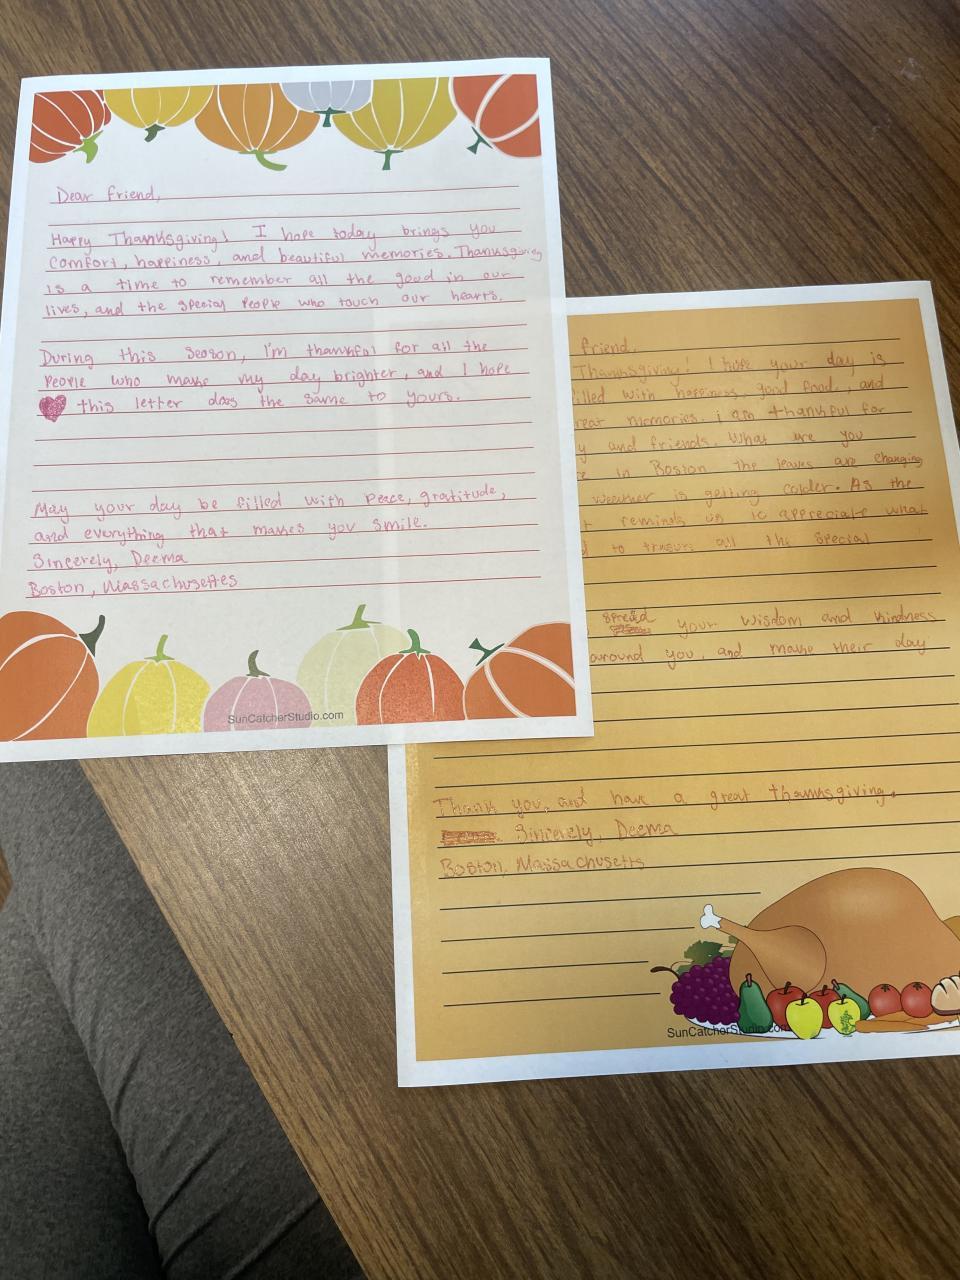 Dear friend,
Happy Thanksgiving! I hope today brings you
comfort, happiness, and beautiful memories. Thanksgiving
is a time to remember all the good in our
lives, and the special people who touch our hearts.
During this season, I'm thankful for all the
people who make my day brighter, and I hope
this letter does the same to yours.
May your day be filled with peace, gratitude,
and everything that makes you smile.
Sincerely, Deema
Boston, Massachusetts
SunCatcherStudio.com
friend,
Thanksgiving! I hope your day is
filled with happiness, good food, and
great memories. i am thankful for
and friends. What are you
in Boston the leaves are changing
weather is getting colder. As the
reminds us to appreciate what
to all the special
spread your wisdom and kindness
around you, and make their day
Thank you, and have a great thanksgiving.
Sincerely, Deema
Boston, Massachusetts
SunCatcherStudio.com